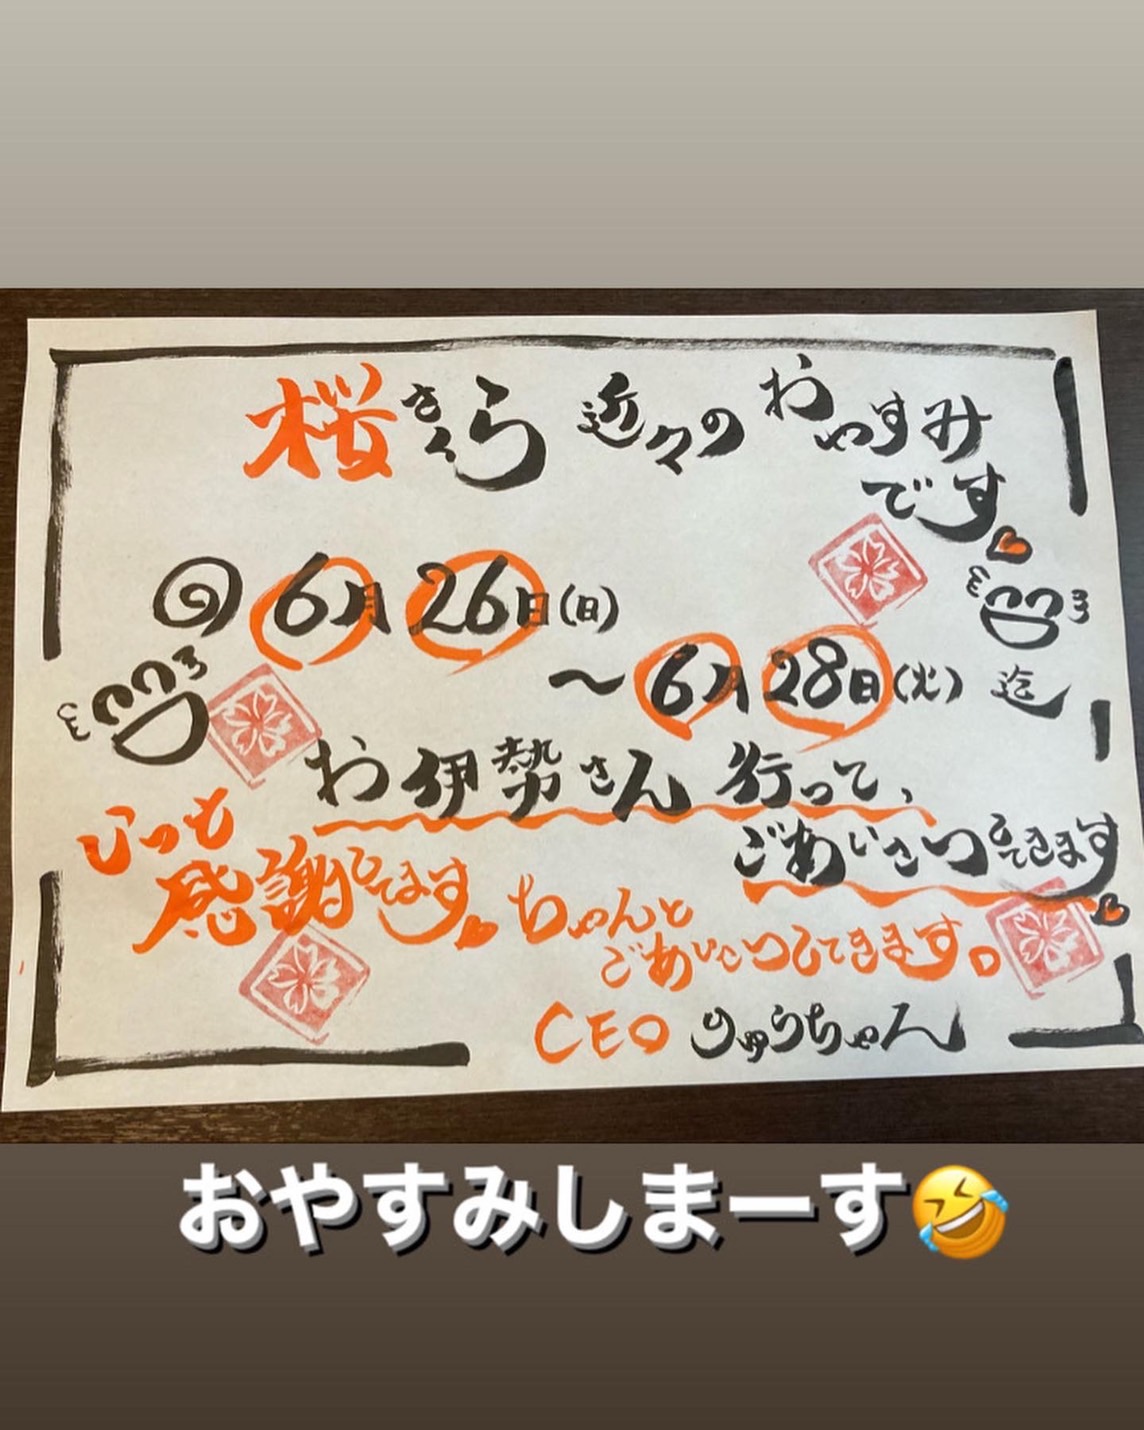 桜さくら 近々のおやすみ
です
6月26日(日)
〜6月28日(火)迄
お伊勢さん行って、
ごあいさつしてきます
いつも
感謝してます
ちゃんと
ごあいさつしてきます。
CEO りゅうちゃん
おやすみしまーす🤣